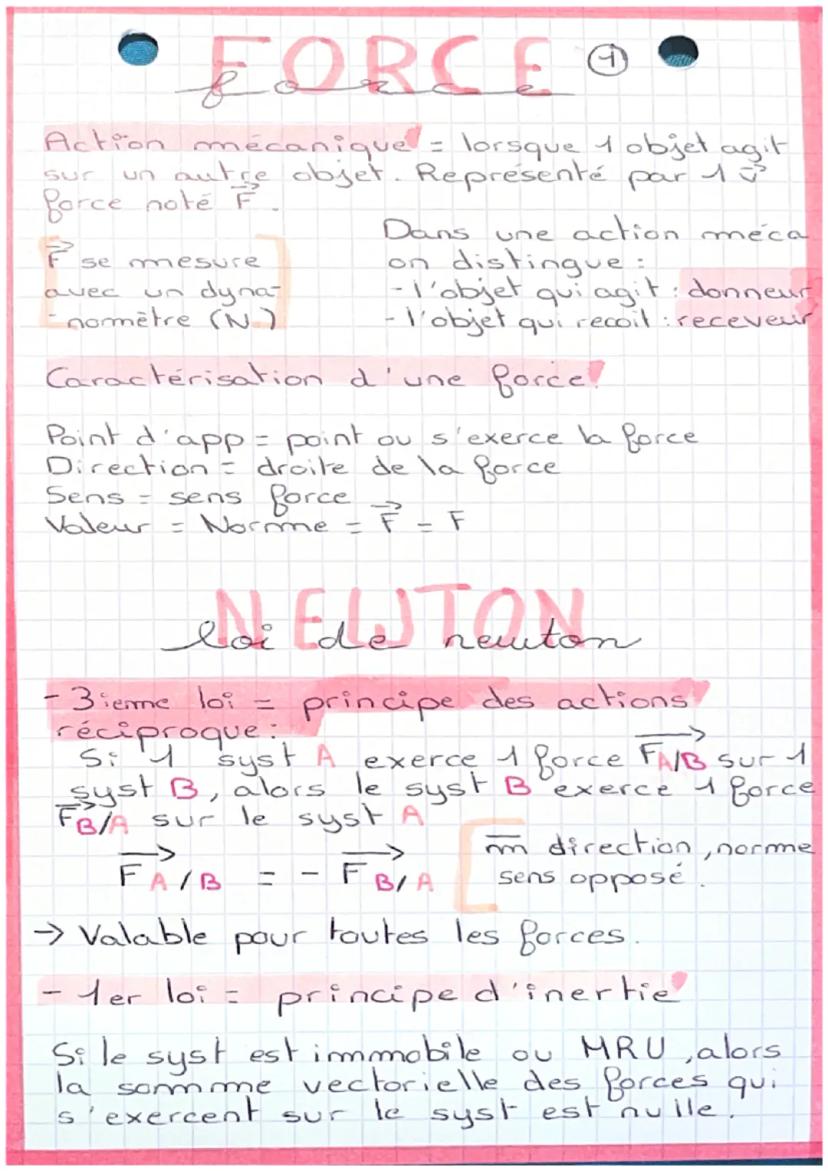 FORCE
force
1
Action mécanique = lorsque 1 objet agit
sur un autre objet. Représenté par 1 v⃗
force noté F⃗.
F⃗ se mesure
avec un dyna-
-nommètre (N)
Dans une action méca
on distingue :
- l'objet qui agit : donneur
- l'objet qui recoit : receveur
Caractérisation d'une force
Point d'app = point ou s'exerce la force
Direction = droite de la force
Sens = sens force
Valeur = Normme = F⃗ = F
NEWTON
loi de newton
- 3ieme loi = principe des actions
réciproque :
Si 1 syst A exerce 1 force F⃗A/B sur 1
syst B, alors le syst B exerce 1 force
F⃗B/A sur le syst A
F⃗A/B = - F⃗B/A
m̄ direction, norme
sens opposé.
→ Valable pour toutes les forces.
- 1er loi = principe d'inertie
Si le syst est immobile ou MRU, alors
la somme vectorielle des forces qui
s'exercent sur le syst est nulle.